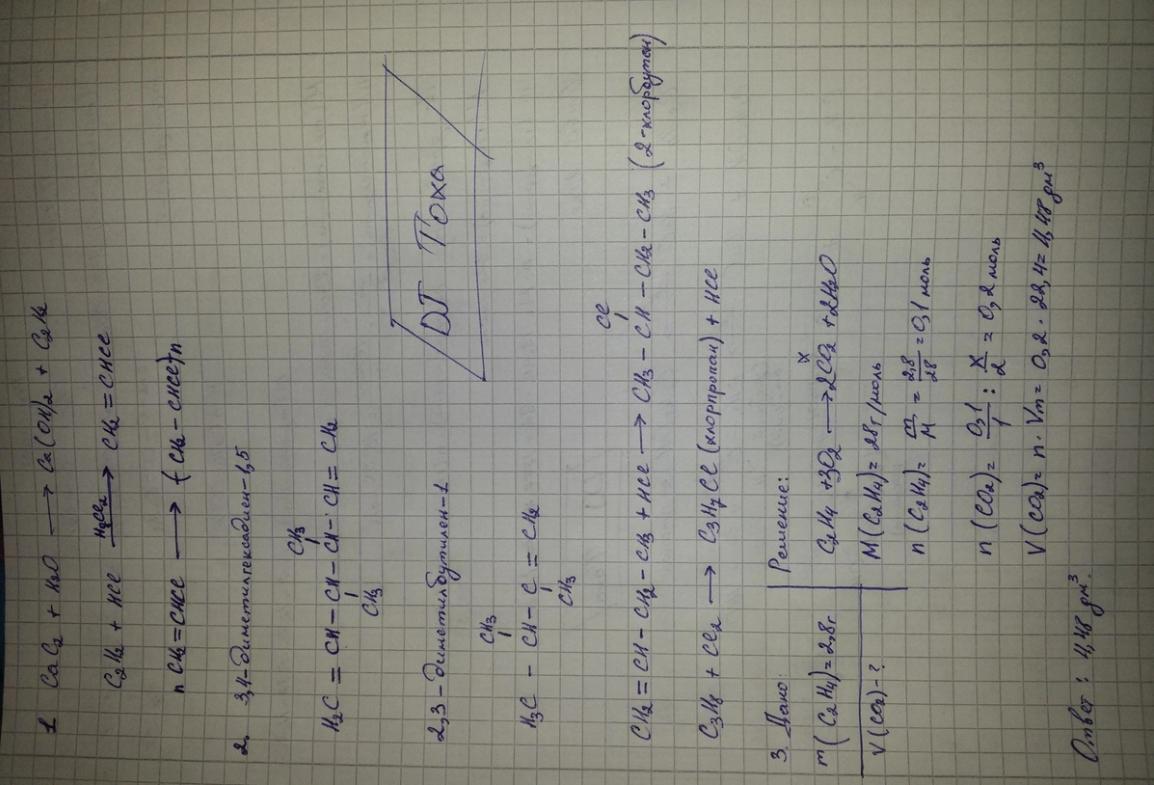 1 CaC2 + H2O ⟶ Ca(OH)2 + C2H2
HgCl2
C2H2 + HCl ⟶ CH2 = CHCl
n CH2=CHCl ⟶ (-CH2-CHCl-)n
2. 3,4-диметилгексадиен-1,5
CH3
H2C = CH - CH - CH - CH = CH2
CH3
DJ Тоха
2,3-диметилбутилен-1
CH3
H3C - CH - C = CH2
CH3
Cl
CH2 = CH - CH2 - CH3 + HCl ⟶ CH3 - CH - CH2 - CH3 (2-хлорбутан)
C3H8 + Cl2 ⟶ C3H7Cl (хлорпропан) + HCl
3. Дано: Решение:
x
m(C2H4)=2,8г C2H4 + 3O2 ⟶ 2CO2 + 2H2O
V(CO2)-? M(C2H4) = 28г/моль
n(C2H4) = m/M = 2,8/28 = 0,1 моль
n(CO2) = 0,1/1 : x/2 = 0,2 моль
V(CO2) = n · Vm = 0,2 · 22,4 = 4,48 дм³
Ответ: 4,48 дм³.